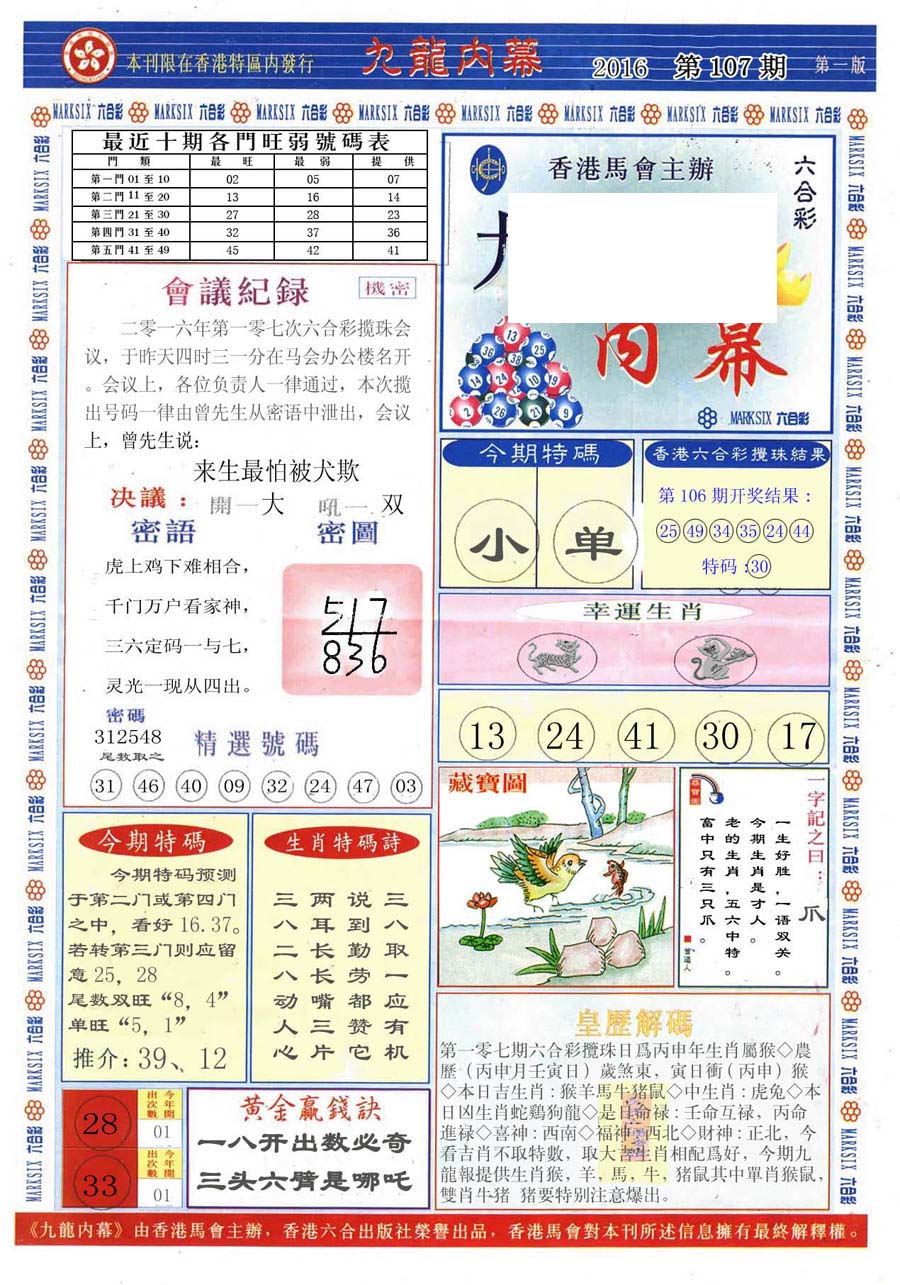 本刊限在香港特區内發行
九龍内幕
2016 第107期
第一版
MARKSIX 六合彩
最近十期各門旺弱號碼表
門類 最旺 最弱 提供
第一門 01 至 10 02 05 07
第二門 11 至 20 13 16 14
第三門 21 至 30 27 28 23
第四門 31 至 40 32 37 36
第五門 41 至 49 45 42 41
會議紀録
機密
二零一六年第一零七次六合彩揽珠会
议，于昨天四时三一分在马会办公楼名开
。会议上，各位负责人一律通过，本次揽
出号码一律由曾先生从密语中泄出，会议
上，曾先生说：
来生最怕被犬欺
决議： 開一大 吼一 双
密語
密圖
虎上鸡下难相合，
千门万户看家神，
三六定码一与七，
灵光一现从四出。
517
836
密碼
312548
尾数取之
精選號碼
31 46 40 09 32 24 47 03
香港馬會主辦
六合彩
内幕
MARKSIX 六合彩
今期特碼
小 单
香港六合彩攪珠結果
第 106 期开奖结果：
25 49 34 35 24 44
特码：30
幸運生肖
13 24 41 30 17
藏寶圖
一字記之曰：
爪
一生好胜，一语双关。
今期生肖是才人。
老的生肖，五六中特。
畜中只有三只爪。
曾道人
今期特碼
今期特码预测
于第二门或第四门
之中，看好 16.37。
若转第三门则应留
意 25，28
尾数双旺“8，4”
单旺“5，1”
推介：39、12
生肖特碼詩
三八取一应有机
说到勤劳都赞它
两耳长长嘴三片
三八二八动人心
28
出次數
今年開
01
33
出次數
今年開
01
黄金赢錢訣
一八开出数必奇
三头六臂是哪吒
皇歷解碼
第一零七期六合彩攪珠日爲丙申年生肖屬猴◇農
歷（丙申月壬寅日）歲煞東，寅日衝（丙申）猴
◇本日吉生肖：猴羊馬牛猪鼠◇中生肖：虎兔◇本
日凶生肖蛇鷄狗龍◇是日命禄：壬命互禄，丙命
進禄◇喜神：西南◇福神：西北◇財神：正北，今
看吉肖不取特數，取大吉生肖相配爲好，今期九
龍報提供生肖猴，羊，馬，牛，猪鼠其中單肖猴鼠，
雙肖牛猪 猪要特别注意爆出。
《九龍内幕》由香港馬會主辦，香港六合出版社榮譽出品，香港馬會對本刊所述信息擁有最終解釋權。